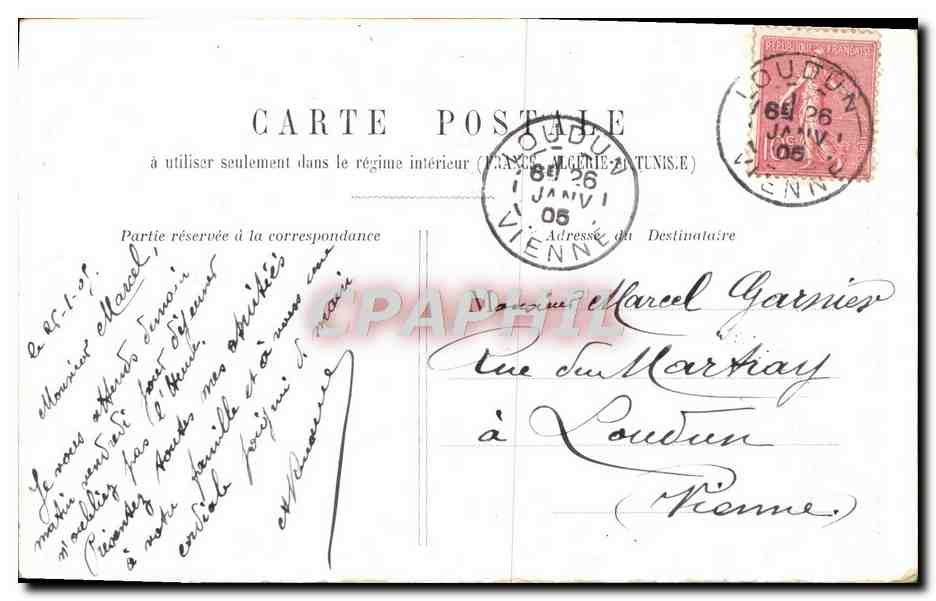 CARTE POSTALE
à utiliser seulement dans le régime intérieur (FRANCE, ALGERIE et TUNISIE)
Partie réservée à la correspondance
Adresse du Destinataire
REPUBLIQUE FRANÇAISE
LOUDUN
26
JANV
05
VIENNE
LOUDUN
26
JANV
05
VIENNE
le 25-1-05
Monsieur Marcel,
Je vous attends demain
matin vendredi pour déjeuner
n'oubliez pas l'heure.
Présentez toutes mes amitiés
à votre famille et à vous une
cordiale poignée de main
Monsieur Marcel Garnier
Rue du Martray
à Loudun
(Vienne)
CPAPHIL